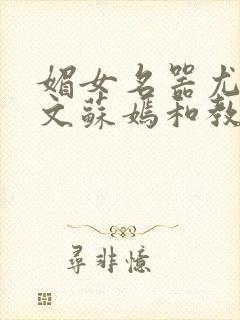 媚女名器尤
文蘇媽和教
尋非憶